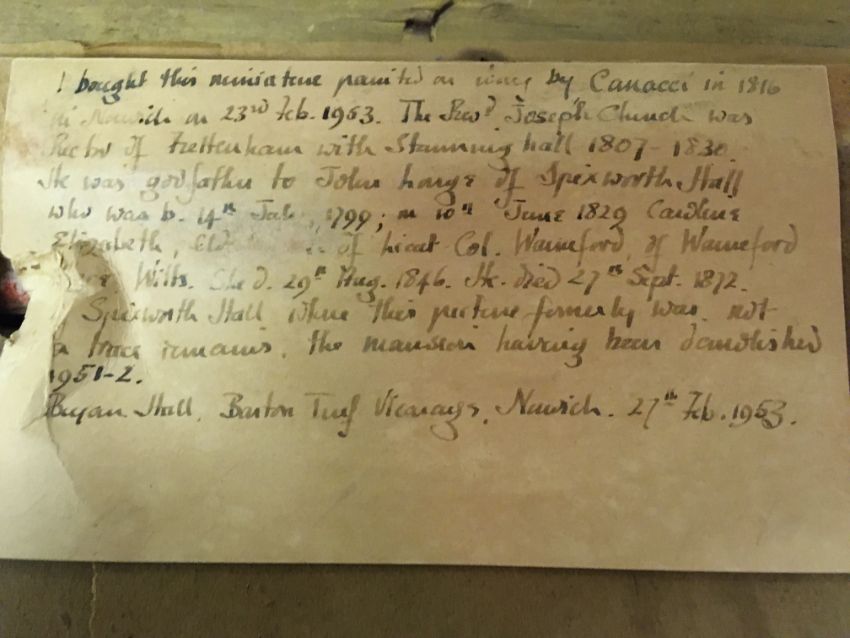 I bought this miniature painted on ivory by Canacci in 1816
in Norwich on 23rd Feb. 1953. The Revd Joseph Church was
Rector of Frettenham with Stanninghall 1807-1830.
He was godfather to John Longe of Spixworth Hall
who was b. 14th July, 1799; m 10th June 1829 Caroline
Elizabeth, of Lieut Col. Warneford, of Warneford
Wilts. She d. 29th Aug. 1846. He died 27th Sept. 1872.
Of Spixworth Hall where this picture formerly was, not
a trace remains, the mansion having been demolished
1951-2.
Bryan Hall, Barton Turf Vicarage, Norwich. 27th Feb. 1953.